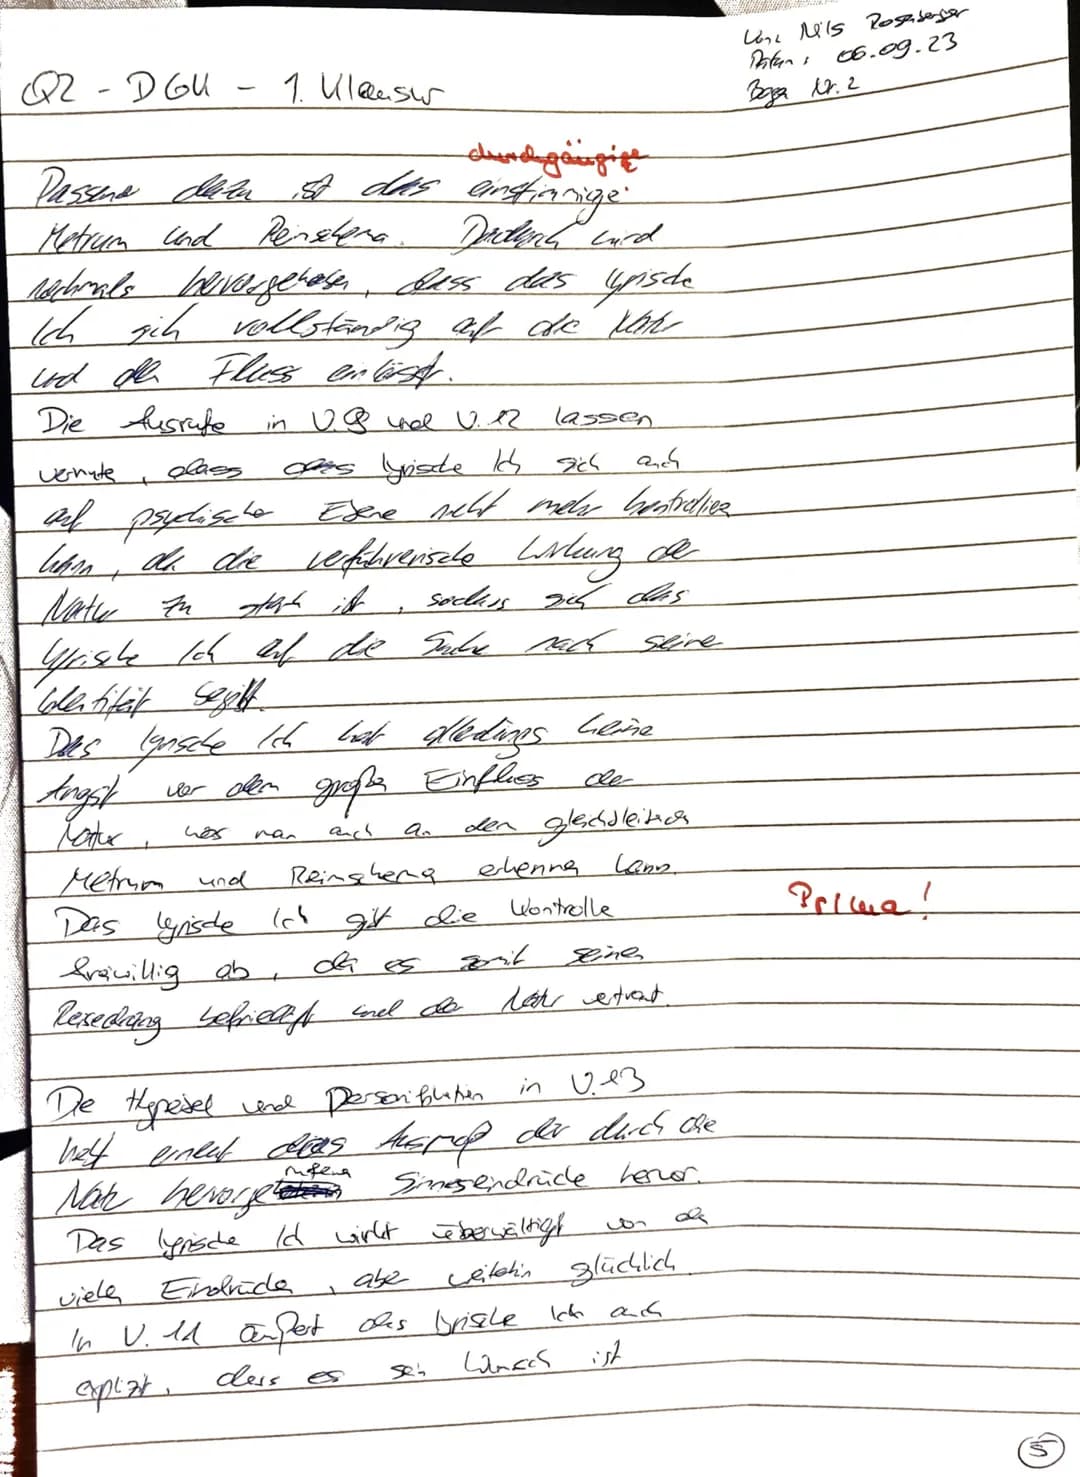 Von: Nils Rosenberger
Datum: 06.09.23
Bogen Nr. 2
Q2 - DGK - 1. Klausur
durchgängige
Passend dazu ist das einstimmige
Metrum und Reimschema. Dadurch wird
nochmals hervorgehoben, dass das lyrische
Ich sich vollständig auf die Natur
und den Fluss einlässt.
Die Ausrufe in V.8 und V.12 lassen
vermuten, dass das lyrische Ich sich auch
auf psychischer Ebene nicht mehr kontrollieren
kann, da die verführerische Wirkung der
Natur zu stark ist, sodass sich das
lyrische Ich auf die Suche nach seiner
Identität begibt.
Das lyrische Ich hat allerdings keine
Angst vor dem großen Einfluss der
Natur, was man auch an dem gleichbleibenden
Metrum und Reimschema erkennen kann.
Das lyrische Ich gibt die Kontrolle
Prima!
freiwillig ab, da es somit seinen
Reisedrang befriedigt und der Natur vertraut.
Die Hyperbel und Personifikation in V.13
hebt erneut das Ausmaß der durch die
rufenen
Natur hervorge Sinneseindrücke hervor.
Das lyrische Ich wirkt überwältigt von den
vielen Eindrücken, aber weiterhin glücklich.
In V. 11 äußert das lyrische Ich auch
explizit, dass es sein Wunsch ist
5